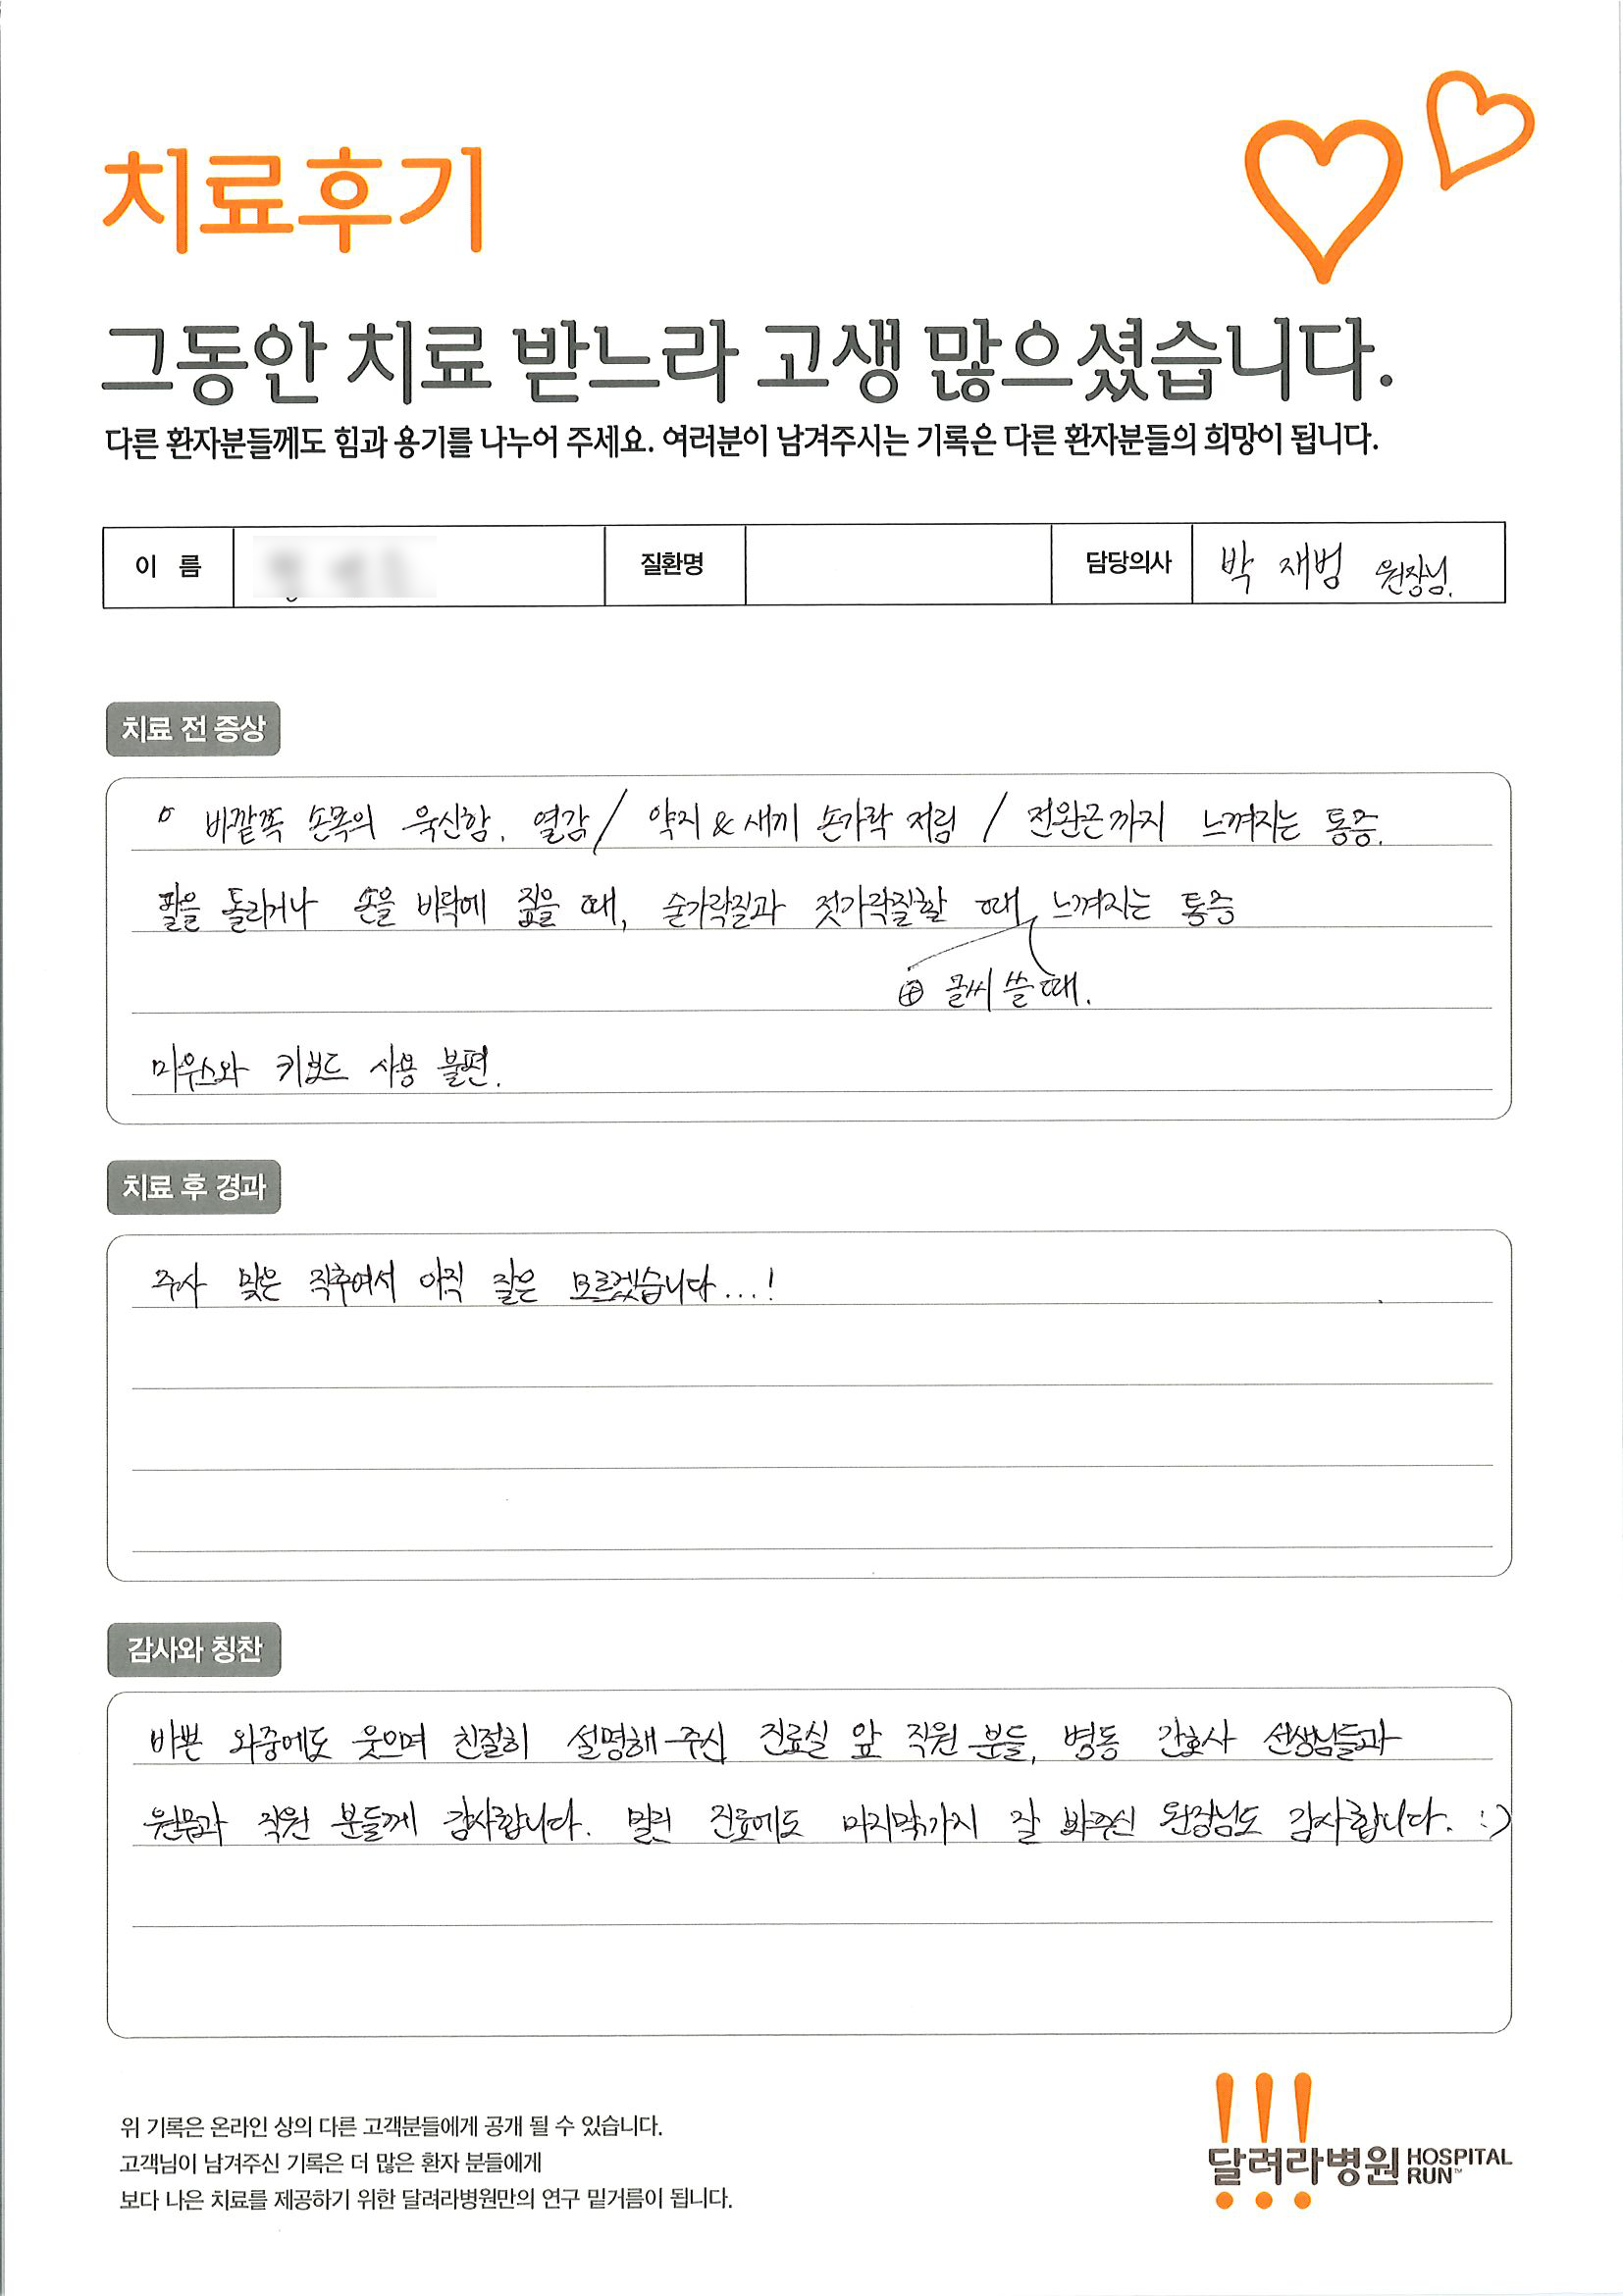 치료후기
그동안 치료 받느라 고생 많으셨습니다.
다른 환자분들께도 힘과 용기를 나누어 주세요. 여러분이 남겨주시는 기록은 다른 환자분들의 희망이 됩니다.
이 름 질환명 담당의사 박 재범 원장님.
치료 전 증상
o 바깥쪽 손목의 욱신함. 열감 / 약지 & 새끼 손가락 저림 / 전완근까지 느껴지는 통증.
팔을 돌리거나 손을 바닥에 짚을 때, 숟가락질과 젓가락질할 때, 느껴지는 통증
⊕ 글씨 쓸 때.
마우스와 키보드 사용 불편.
치료 후 경과
주사 맞은 직후여서 아직 잘은 모르겠습니다...!
감사와 칭찬
바쁜 와중에도 웃으며 친절히 설명해 주신 진료실 앞 직원 분들, 병동 간호사 선생님들과
원무과 직원 분들께 감사합니다. 밀린 진료에도 마지막까지 잘 봐주신 원장님도 감사합니다. :)
위 기록은 온라인 상의 다른 고객분들에게 공개 될 수 있습니다.
고객님이 남겨주신 기록은 더 많은 환자 분들에게
보다 나은 치료를 제공하기 위한 달려라병원만의 연구 밑거름이 됩니다.
달려라병원 HOSPITAL RUN™